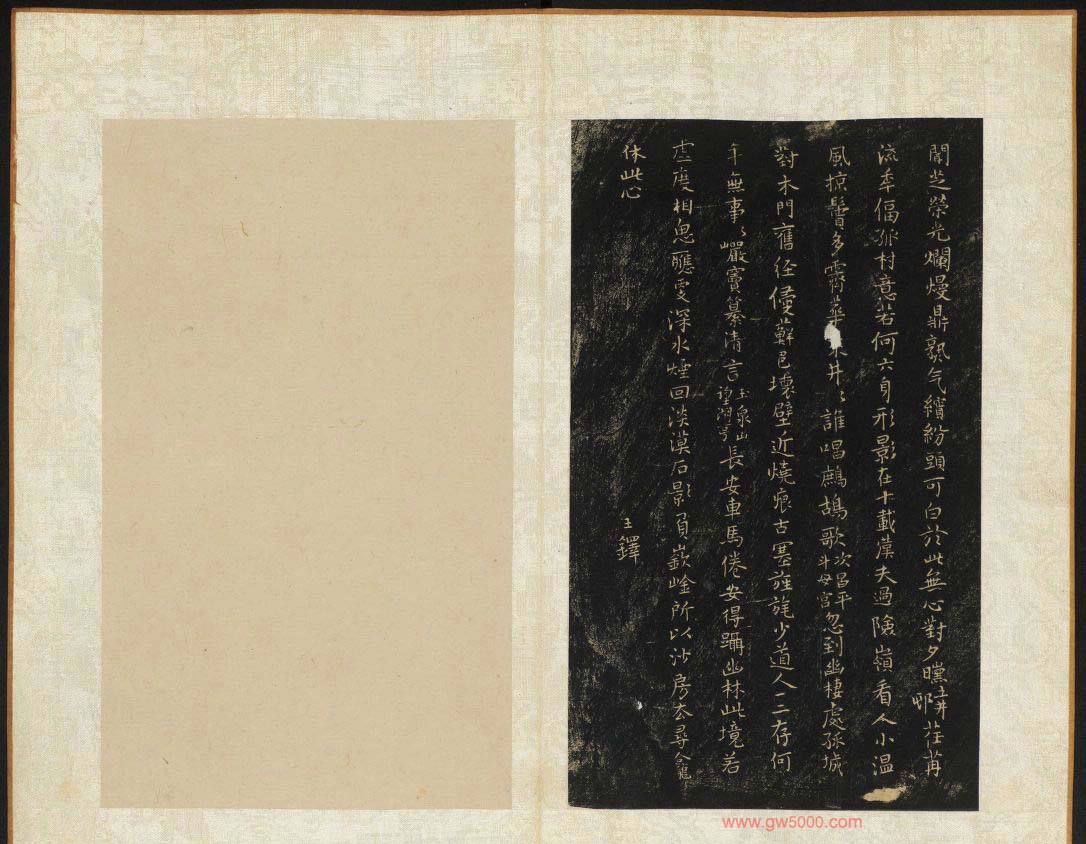 閒芝榮光爛熳鼎熟气繽紛頭可白於此無心對夕曛 鄲荏苒
流年偪孤村意若何六身形影在十載漢夫過險嶺看人小溫
風掠鬢多霽華 井〻誰唱鷓鴣歌 次昌平斗母宮 忽到幽棲處孤城
對木門舊径侵蘚邑壞壁近燒痕古塞旌旄少道人一二存何
年無事〻巖竇纂清言 玉泉山望湖亭 長安車馬倦安得躡幽林此境若
虛度相思應更深水煙回淡漠石影負嶔崟所以沙房去尋龕
休此心
王鐸
www.gw5000.com